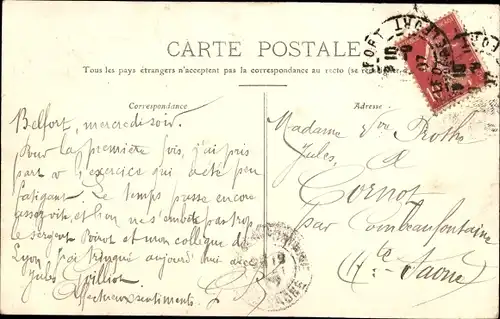 CARTE POSTALE
Tous les pays étrangers n'acceptent pas la correspondance au recto (se
Correspondance
Adresse
Belfort, mercredi soir.
Pour la première fois, j'ai pris
part à l'exercice qui a été peu
fatigant. Le temps passe encore
assez vite, et l'on ne s'embête pas trop.
le sergent et mon collègue de
Lyon, j'ai trinqué aujourd'hui avec
Jules
Affectueux sentiments.
Madame Vve
Jules
à
Cornot
par Combeaufontaine
(Hte-Saône)
BELFORT